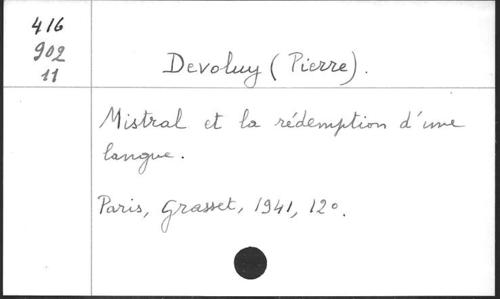 416
902
11
Devoluy (Pierre).
Mistral et la rédemption d'une
langue.
Paris, Grasset, 1941, 12°.